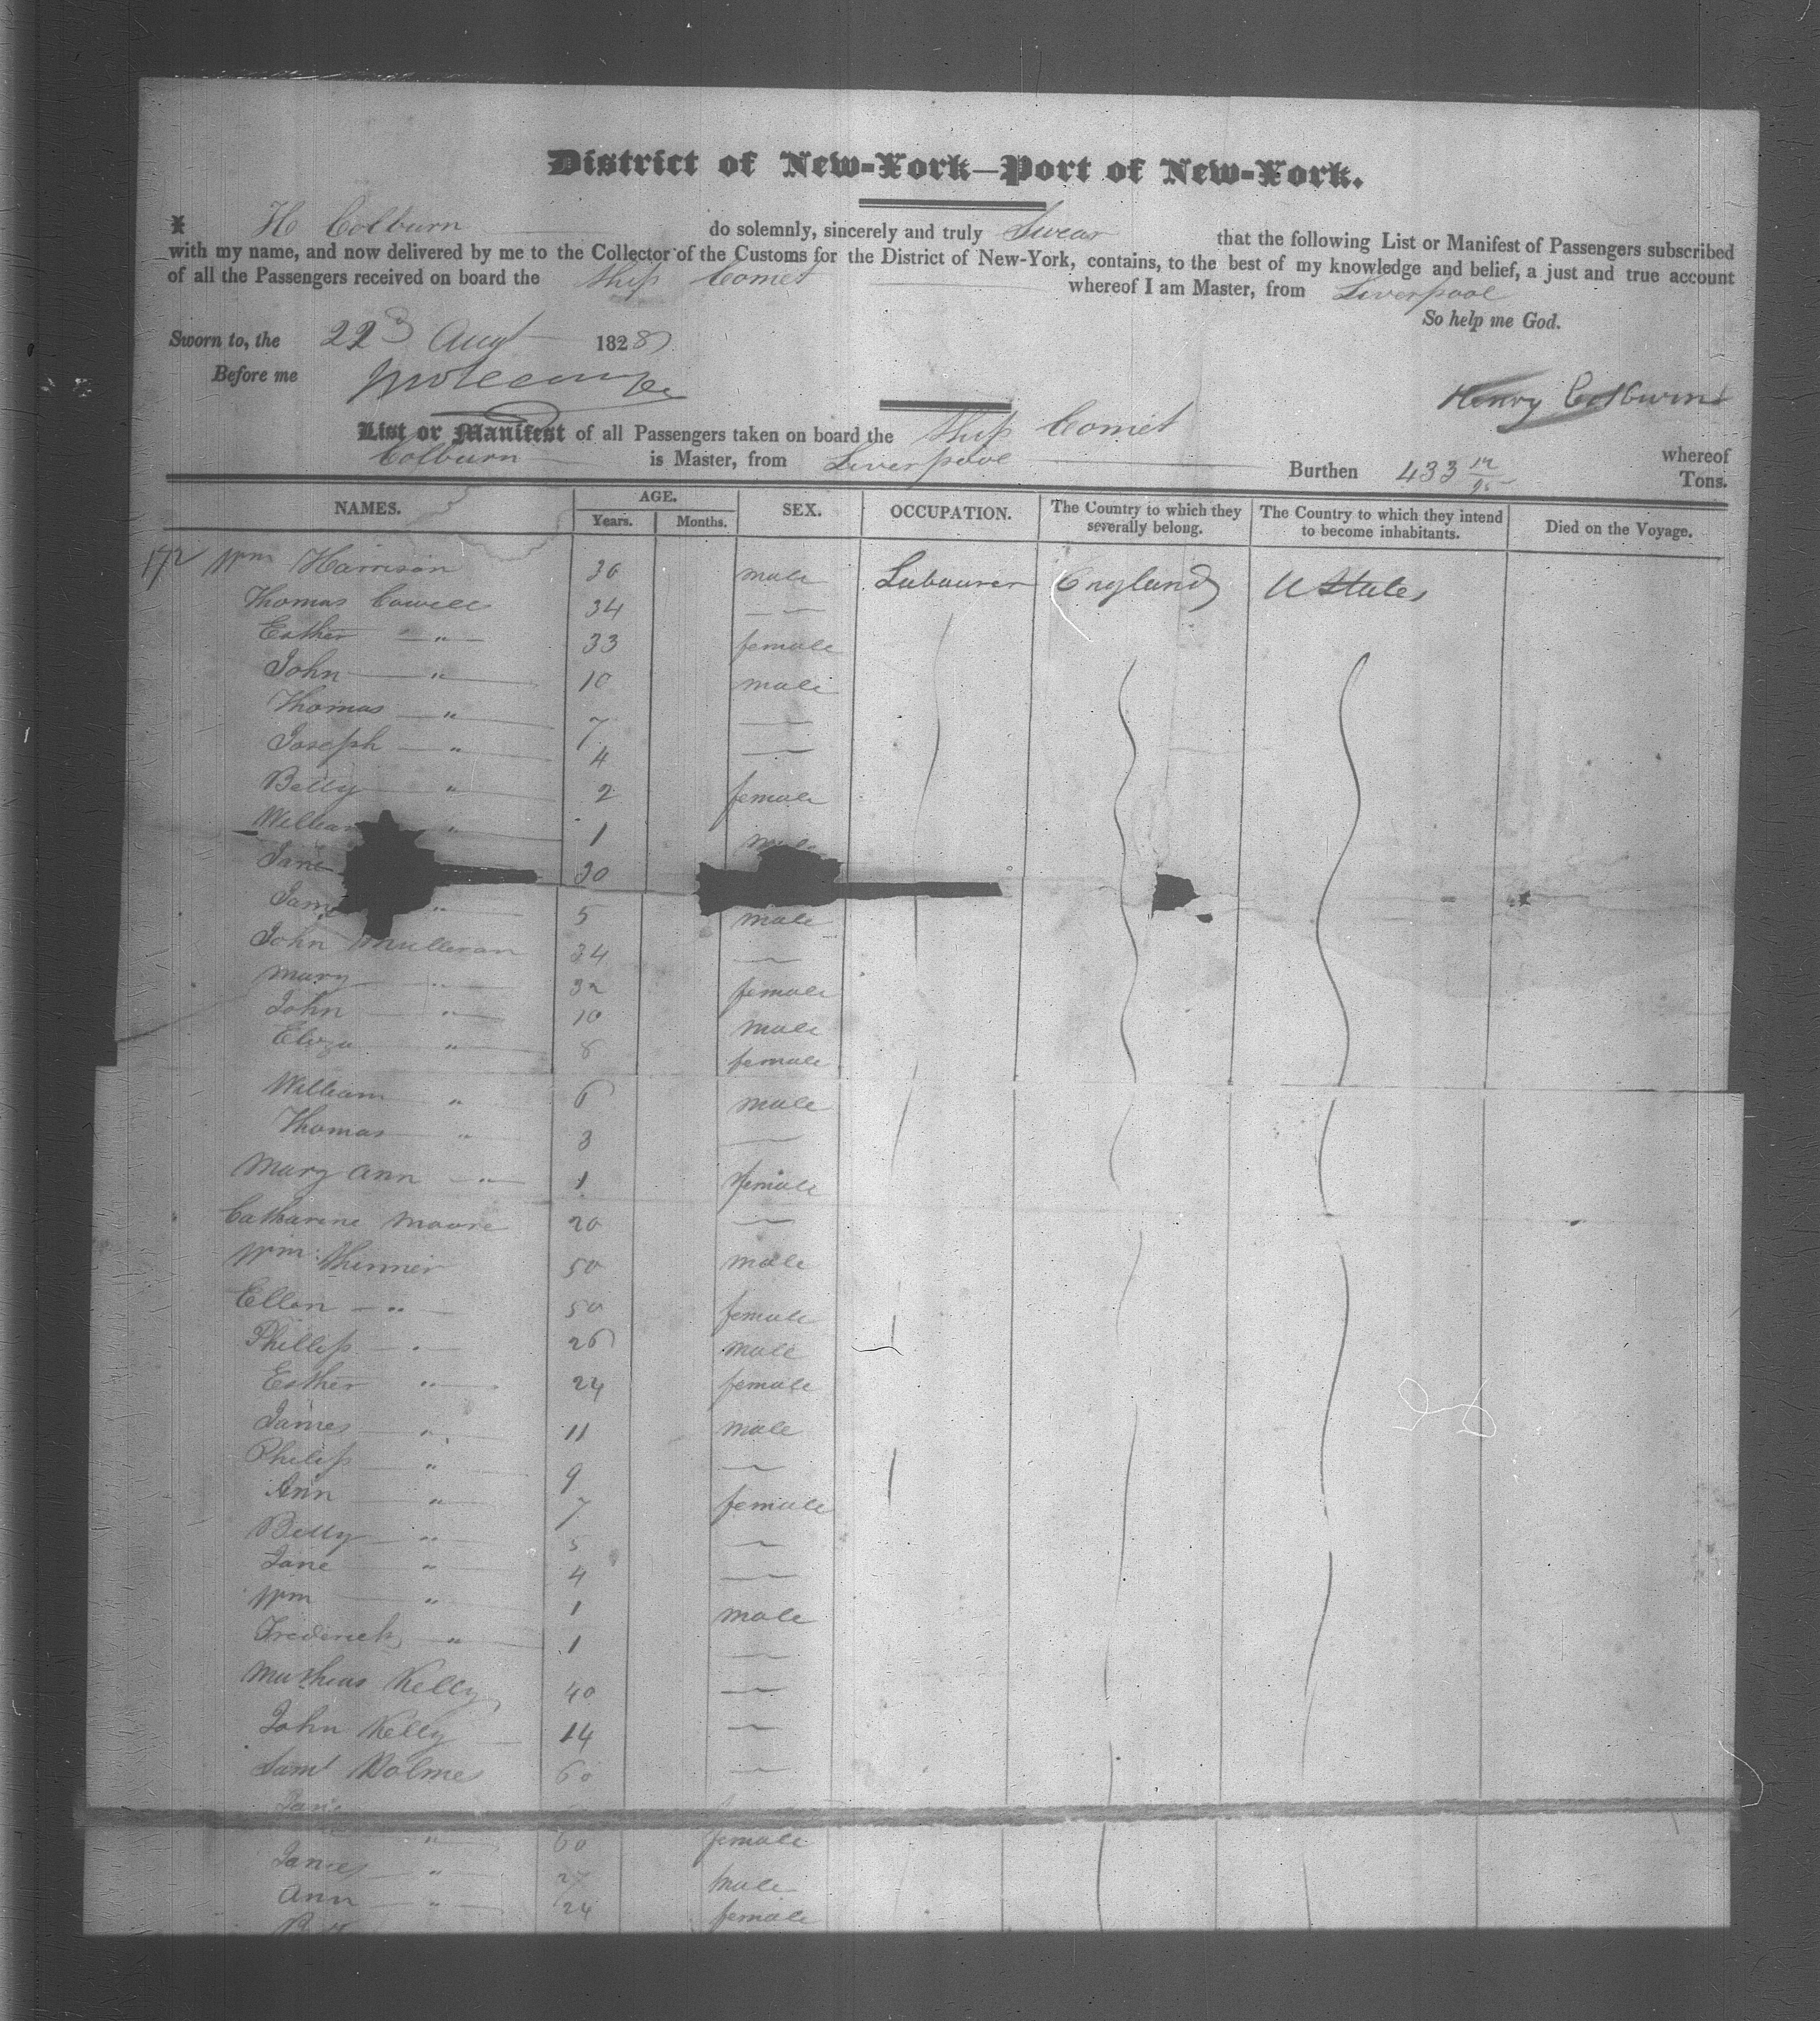 District of New-York—Port of New-York.
I H Colburn do solemnly, sincerely and truly Swear that the following List or Manifest of Passengers subscribed
with my name, and now delivered by me to the Collector of the Customs for the District of New-York, contains, to the best of my knowledge and belief, a just and true account
of all the Passengers received on board the Ship Comet whereof I am Master, from Liverpool
So help me God.
Sworn to, the 223 Augt 1828
Before me
Henry Colburn
List or Manifest of all Passengers taken on board the Ship Comet whereof
Colburn is Master, from Liverpool Burthen 433 12/95 Tons.
NAMES. AGE. Years. Months. SEX. OCCUPATION. The Country to which they severally belong. The Country to which they intend to become inhabitants. Died on the Voyage.
172 Wm Harrison 36 male Labourer England U States
Thomas Cowell 34 —
Esther — " — 33 female
John — " — 10 male
Thomas — " — 7 —
Joseph — " — 4 —
Betty — " — 2 female
William " — 1 male
Jane 30
Jame " — 5 male
John 34 —
Mary — " — 32 female
John — " — 10 male
Eliza " — 8 female
William " — 6 male
Thomas " — 3 —
Mary Ann — " — 1 female
Catharine Moore 20 —
Wm 50 male
Ellen — " — 50 female
Phillip — " — 26 male
Esther " — 24 female
James " — 11 male
Philip — " 9 —
Ann " 7 female
Betty — " 5 —
Jane " 4 —
Wm — " 1 male
Frederick " — 1 —
Mathias Kelly 40 —
John Kelly — 14 —
Saml Holmes 60 —
Jane " — 60 female
James — " — male
Ann — " — 24 female